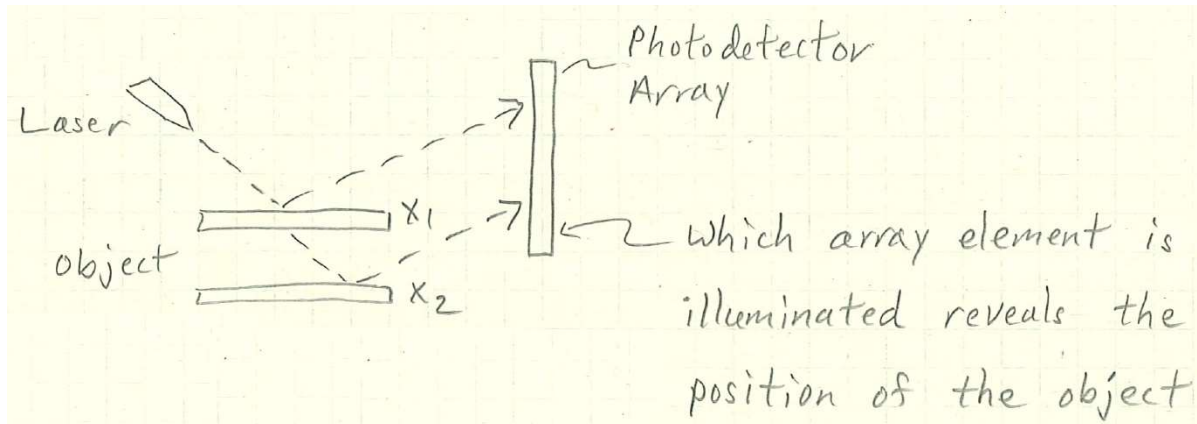 Photodetector
Array
Laser
X1
object
X2
Which array element is
illuminated reveals the
position of the object